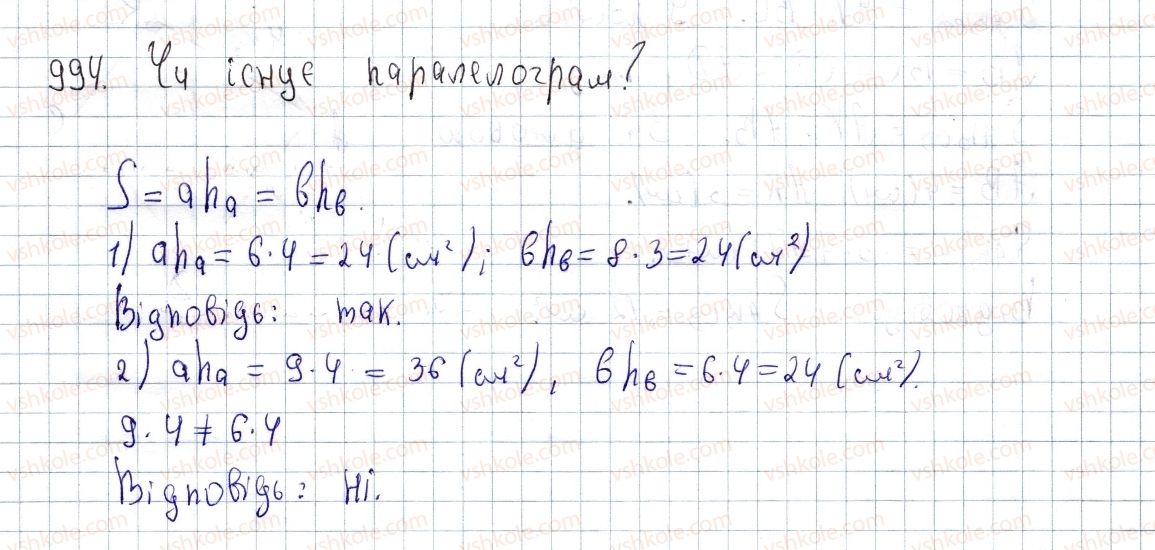 994. Чи існує паралелограм?
S = ahₐ = bh_b.
1) ahₐ = 6·4 = 24 (см²); bh_b = 8·3 = 24 (см²)
Відповідь: так.
2) ahₐ = 9·4 = 36 (см²), bh_b = 6·4 = 24 (см²).
9·4 ≠ 6·4
Відповідь: ні.